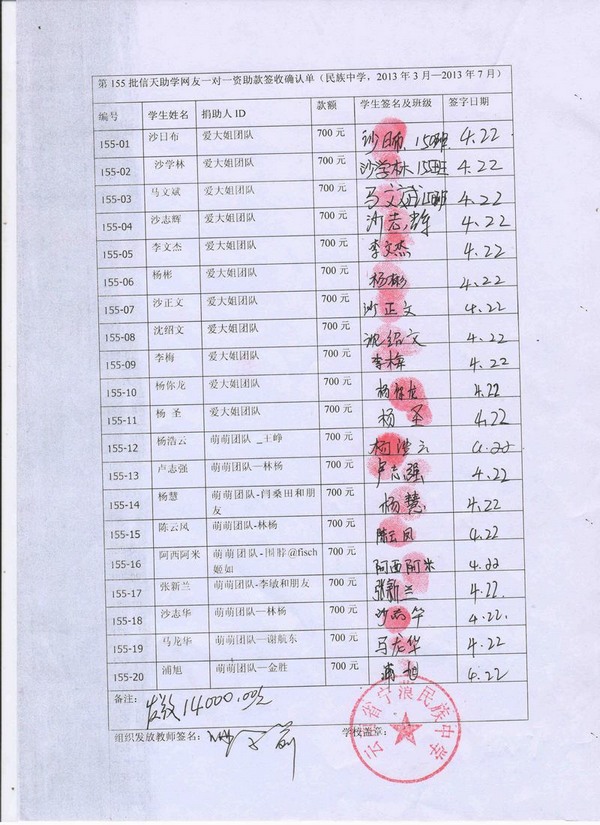 第 155 批信天助学网友一对一资助款签收确认单（民族中学，2013 年 3 月—2013 年 7 月）
编号 学生姓名 捐助人 ID 款额 学生签名及班级 签字日期
155-01 沙日布 爱大姐团队 700 元 沙日布 150班 4.22
155-02 沙学林 爱大姐团队 700 元 沙学林 150班 4.22
155-03 马文斌 爱大姐团队 700 元 马文斌 4.22
155-04 沙志辉 爱大姐团队 700 元 沙志辉 4.22
155-05 李文杰 爱大姐团队 700 元 李文杰 4.22
155-06 杨彬 爱大姐团队 700 元 杨彬 4.22
155-07 沙正文 爱大姐团队 700 元 沙正文 4.22
155-08 沈绍文 爱大姐团队 700 元 沈绍文 4.22
155-09 李梅 爱大姐团队 700 元 李梅 4.22
155-10 杨你龙 爱大姐团队 700 元 杨你龙 4.22
155-11 杨 圣 爱大姐团队 700 元 杨 圣 4.22
155-12 杨浩云 萌萌团队 _王峥 700 元 杨浩云 4.22
155-13 卢志强 萌萌团队—林杨 700 元 卢志强 4.22
155-14 杨慧 萌萌团队-闫桑田和朋 700 元 杨慧 4.22
友
155-15 陈云凤 萌萌团队-林杨 700 元 陈云凤 4.22
155-16 阿西阿米 萌萌团队-围脖@fisch 700 元 阿西阿米 4.22
姬如
155-17 张新兰 萌萌团队-李敏和朋友 700 元 张新兰 4.22
155-18 沙志华 萌萌团队—林杨 700 元 沙志华 4.22
155-19 马龙华 萌萌团队—谢航东 700 元 马龙华 4.22
155-20 浦旭 萌萌团队—金胜 700 元 浦旭 4.22
备注：
发放14000.00元
组织发放教师签名： 学校盖章：
云南省宁蒗民族中学